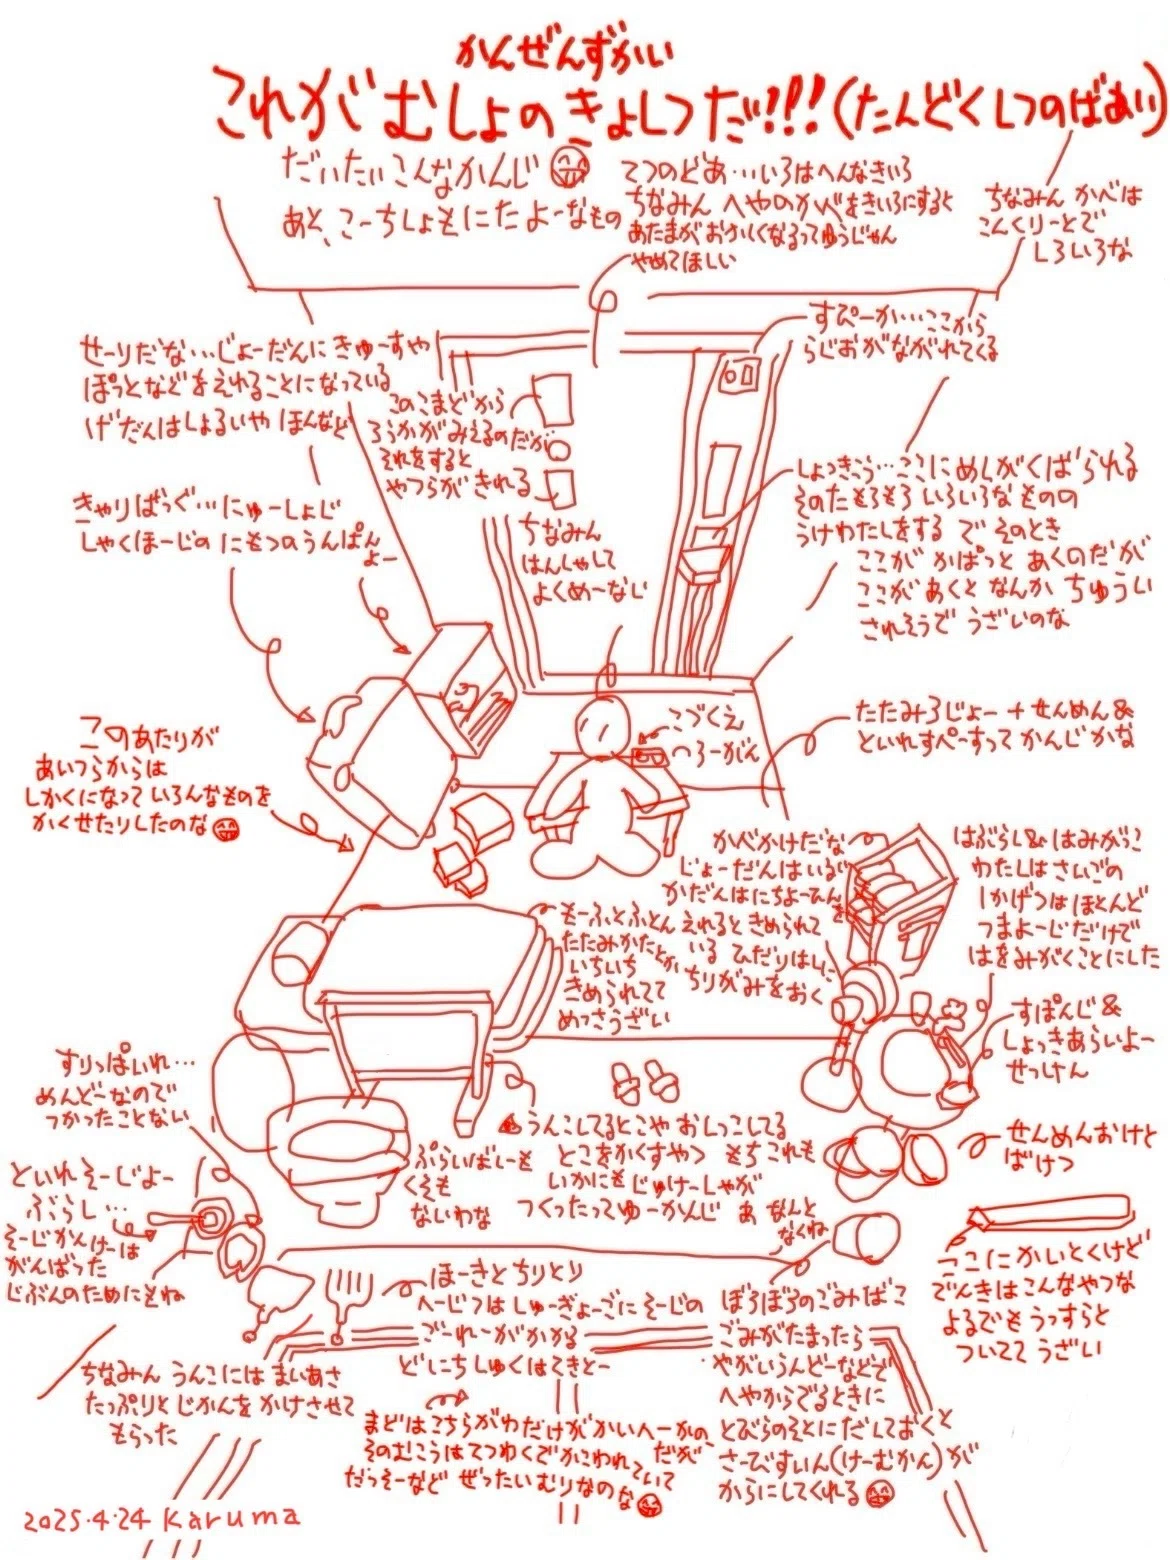 かんぜんずかい
これが むしょの きょしつだ!!!(たんどくしつのばあい)
だいたいこんなかんじ
あと、こーちしょもにたよーなもの
てつのどあ…いろはへんなきいろ
ちなみん へやのかべをきいろにすると
あたまがおかしくなるってゆうじゃん
やめてほしい
ちなみん かべは
こんくりーとで
しろいろな
すぴーか…ここから
らじおがながれてくる
せーりだな…じょーだんに きゅーすや
ぽっとなどをえれることになっている
げだんはしょるいや ほんなど
このこまどから
ろうかがみえるのだが
それをすると
やつらがきれる
ちなみん
はんしゃして
よくめーない
しょっきこう…ここにめしがくばられる
そのたもろもろ いろいろなものの
うけわたしをする で そのとき
ここが かぱっと あくのだが
ここがあくと なんか ちゅうい
されそうで うざいのな
きゃりばっぐ…にゅーしょじ
しゃくほーじの にもつのうんぱん
よー
このあたりが
あいつらからは
しかくになって いろんなものを
かくせたりしたのな
こづくえ
つろーがん
たたみ3じょー + せんめん&
といれすぺーすって かんじかな
かべかけだな
じょーだんはいるい
かだんはにちよーひんを
えれると きめられて
いる ひだりはしに
ちりがみをおく
はぶらし&はみがっこ
わたしはさいごの
1かげつはほとんど
つまよーじだけで
はをみがくことにした
もーふとふとん
たたみかたとか
いちいち
きめられてて
めっさうざい
すぽんじ&
しょっきあらいよー
せっけん
すりっぱいれ…
めんどーなので
つかったことない
うんこしてるとこや おしっこしてる
とこをかくすやつ もち これも
いかにも じゅけーしゃが
つくったってゆーかんじ あ なんと
なくね
ぷらいばしーも
くそも
ないわな
せんめんおけと
ばけつ
といれそーじよー
ぶらし…
そーじがんけーは
がんばった
じぶんのためにもね
ほーきとちりとり
へーじつはしゅーぎょーごにそーじの
ごーれーがかかる
どにちしゅくはてきとー
ぼろぼろのごみばこ
ごみがたまったら
やがいうんどーなどで
へやからでるときに
とびらのそとにだしておくと
さーびすいん(けーむかん)が
からにしてくれる
ここにかいとくけど
でんきはこんなやつな
よるでもうっすらと
ついてて うざい
ちなみん うんこには まいあさ
たっぷりと じかんを かけさせて
もらった
まどはこちらがわだけがかいへーかの、だが
そのむこうはてつわくでかこわれていて
だっそーなど ぜったいむりなのな
2025.4.24 Karuma